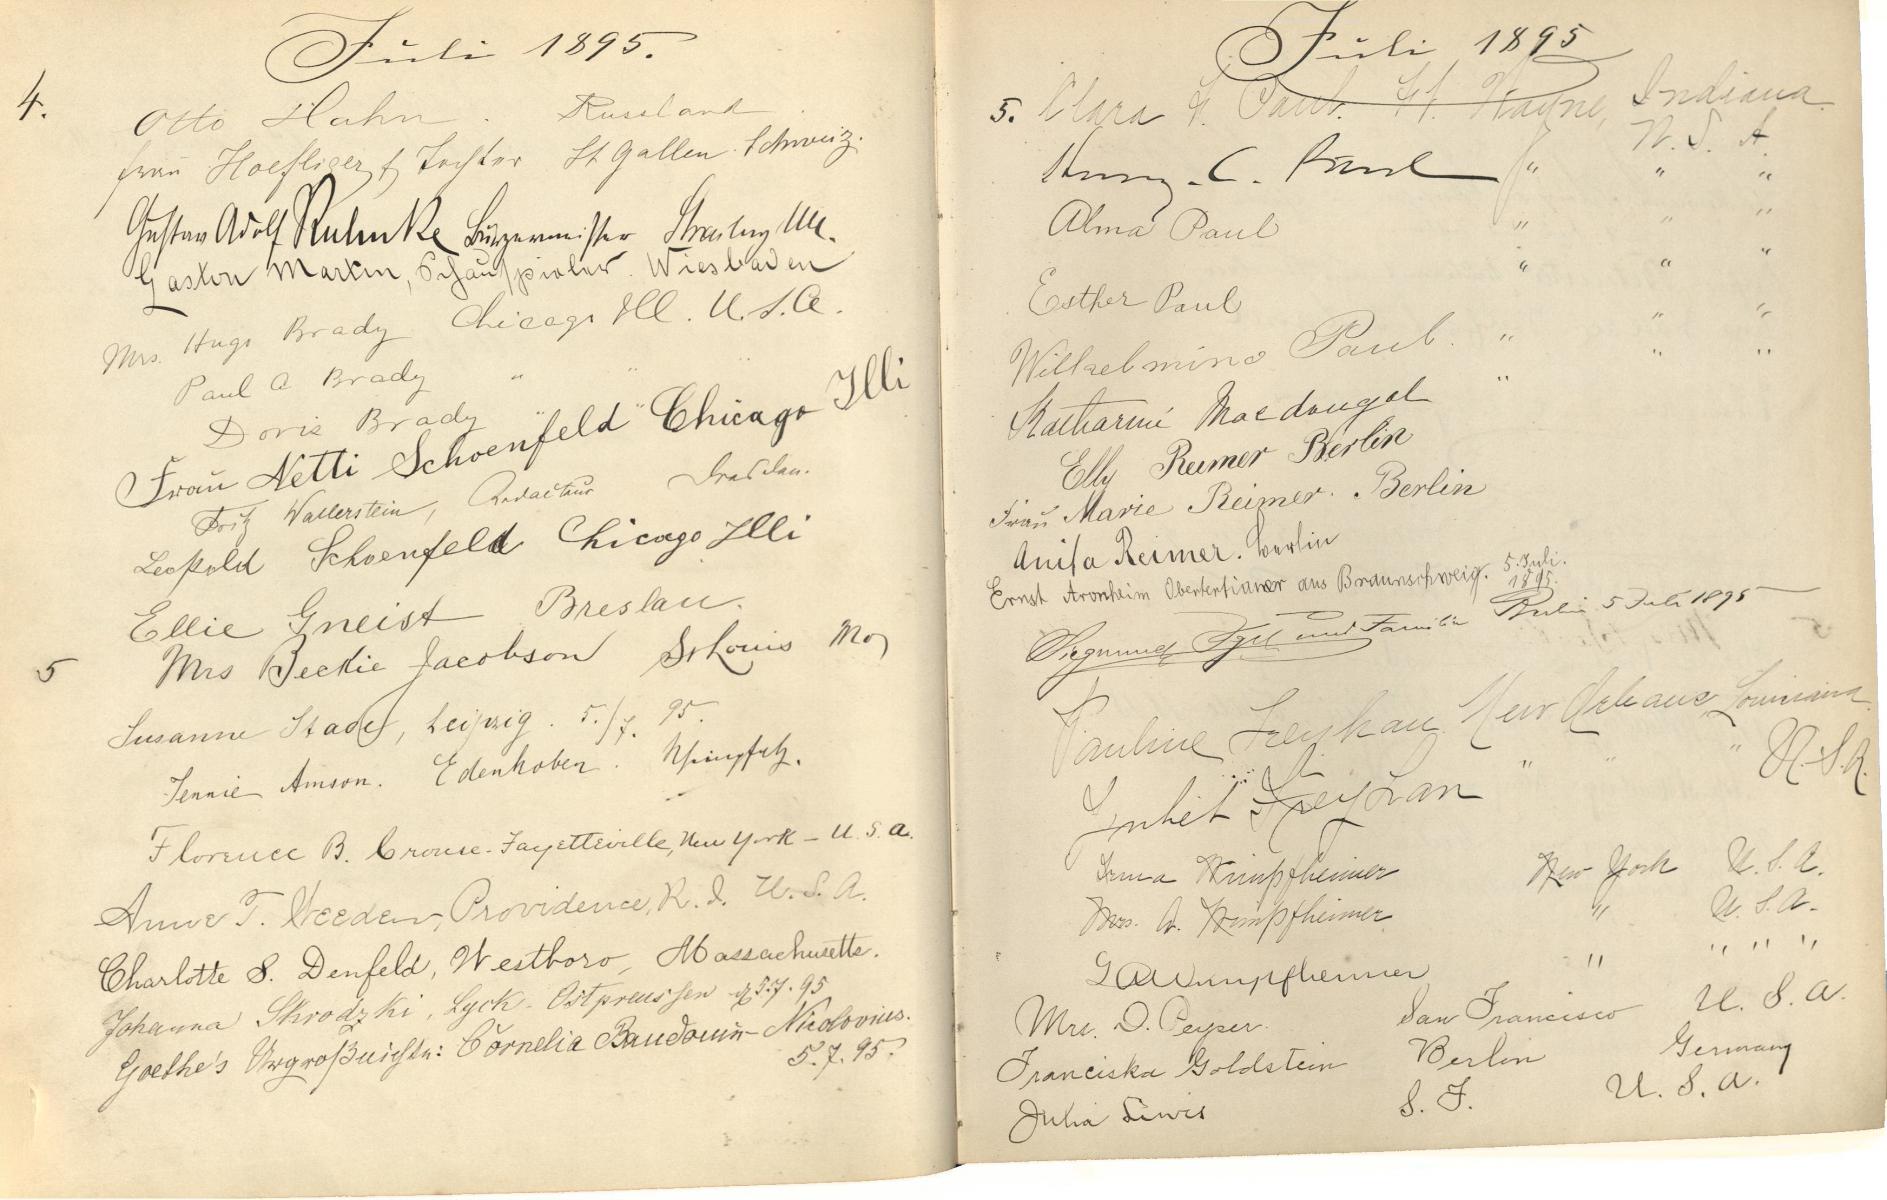 Juli 1895.
4.
Otto Hahn. Russland
Frau Hoefliger & Tochter St Gallen. Schweiz.
Gustav Adolf Ruhnke Bürgermeister
Gaston Martin, Schauspieler. Wiesbaden
Mrs. Hugo Brady Chicago Ill. U.S.A.
Paul A Brady " "
Doris Brady " "
Frau Netti Schoenfeld Chicago Illi
Fritz Wallerstein, Redacteur Dresden.
Leopold Schoenfeld Chicago Illi
Ellie Gneist Breslau.
5 Mrs Beckie Jacobson St Louis Mo
Susanne Stade, Leipzig. 5./7. 95.
Jennie Amson. Edenkoben. Rheinpfalz.
Florence B. Crouse - Fayetteville, New York - U.S.A.
Anne T. Weeden, Providence, R.I. U.S.A.
Charlotte S. Denfeld, Westboro, Massachusetts.
Johanna Skrodzki, Lyck - Ostpreussen 5.7.95
Goethe's Urgroßnichte: Cornelia Baudouin - Nicolovius.
5.7.95.
Juli 1895
5. Clara F. Paul. Ft. Wayne, Indiana
U. S. A.
Henry. C. Paul " " "
Alma Paul " " "
Esther Paul " " "
Wilhelmina Paul. " " "
Katharine Macdougal " " "
Elly Reimer Berlin
Frau Marie Reimer. Berlin
Anita Reimer. Berlin
Ernst Aronheim Obertertianer aus Braunschweig. 5. Juli. 1895.
Siegmund und Familie Berlin 5 Juli 1895
Pauline Freyhan New Orleans, Louisiana
" " " U.S.A.
Freyhan
Irma Wimpfheimer New York U.S.A.
Mrs. A. Wimpfheimer " U.S.A.
G A Wimpfheimer " " " "
Mrs. D. Peyser. San Francisco U.S.A.
Franciska Goldstein Berlin Germany
Julia Lewis S. F. U.S.A.